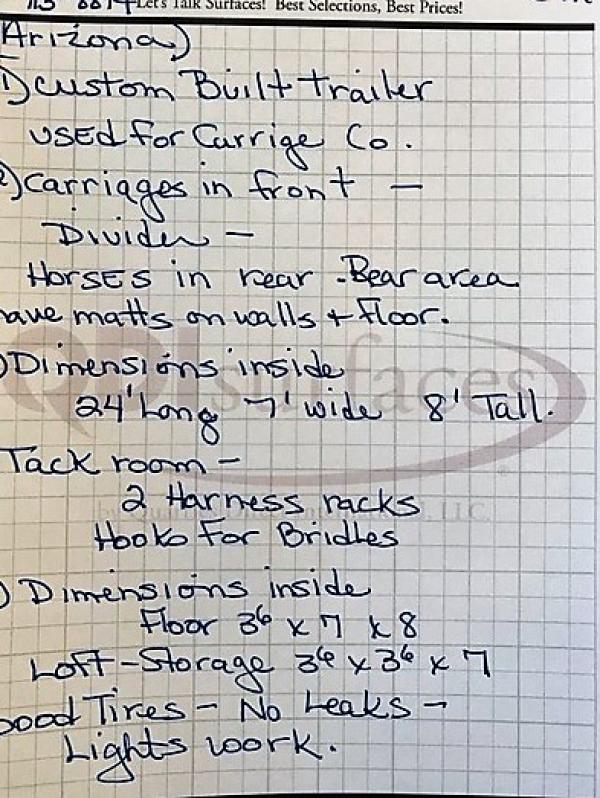 Let's Talk Surfaces! Best Selections, Best Prices!
Arizona)
1) Custom Built Trailer
USED for Carrige Co.
2) Carriages in front –
Divider –
Horses in rear - Bear area
have matts on walls + Floor.
) Dimensions inside
24' Long 7' wide 8' Tall.
Tack room –
2 Harness racks
Hooks For Bridles
) Dimensions inside
Floor 3⁶ x 7 x 8
Loft-Storage 3⁶ x 3⁶ x 7
Good Tires – No Leaks –
Lights work.
QDI surfaces